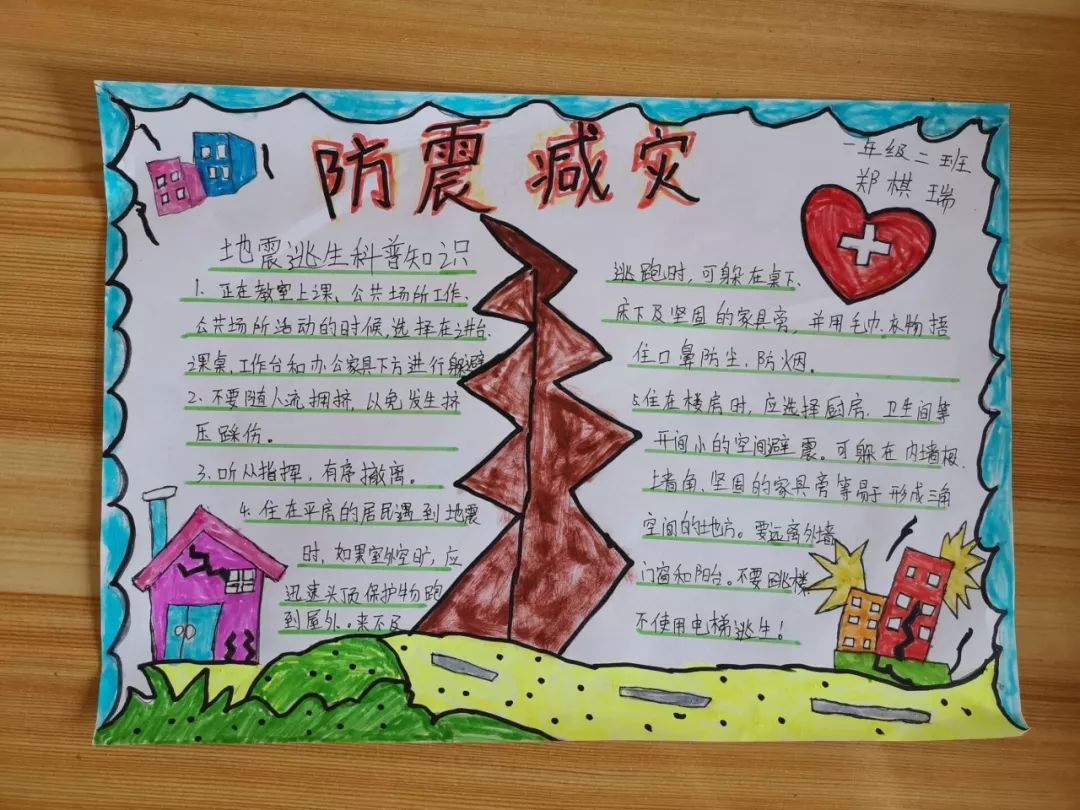 防震减灾
一年级二班
郑棋瑞
地震逃生科普知识
1. 正在教室上课、公共场所工作、
公共场所活动的时候,选择在讲台、
课桌、工作台和办公家具下方进行躲避
2. 不要随人流拥挤,以免发生挤
压踩伤。
3. 听从指挥,有序撤离。
4. 住在平房的居民遇到地震
时,如果室外空旷,应
迅速头顶保护物跑
到屋外。来不及
逃跑时,可躲在桌下、
床下及坚固的家具旁,并用毛巾、衣物捂
住口鼻防尘、防烟。
5.住在楼房时,应选择厨房、卫生间等
开间小的空间避震。可躲在内墙根、
墙角、坚固的家具旁等易于形成三角
空间的地方。要远离外墙、
门窗和阳台。不要跳楼
不使用电梯逃生!